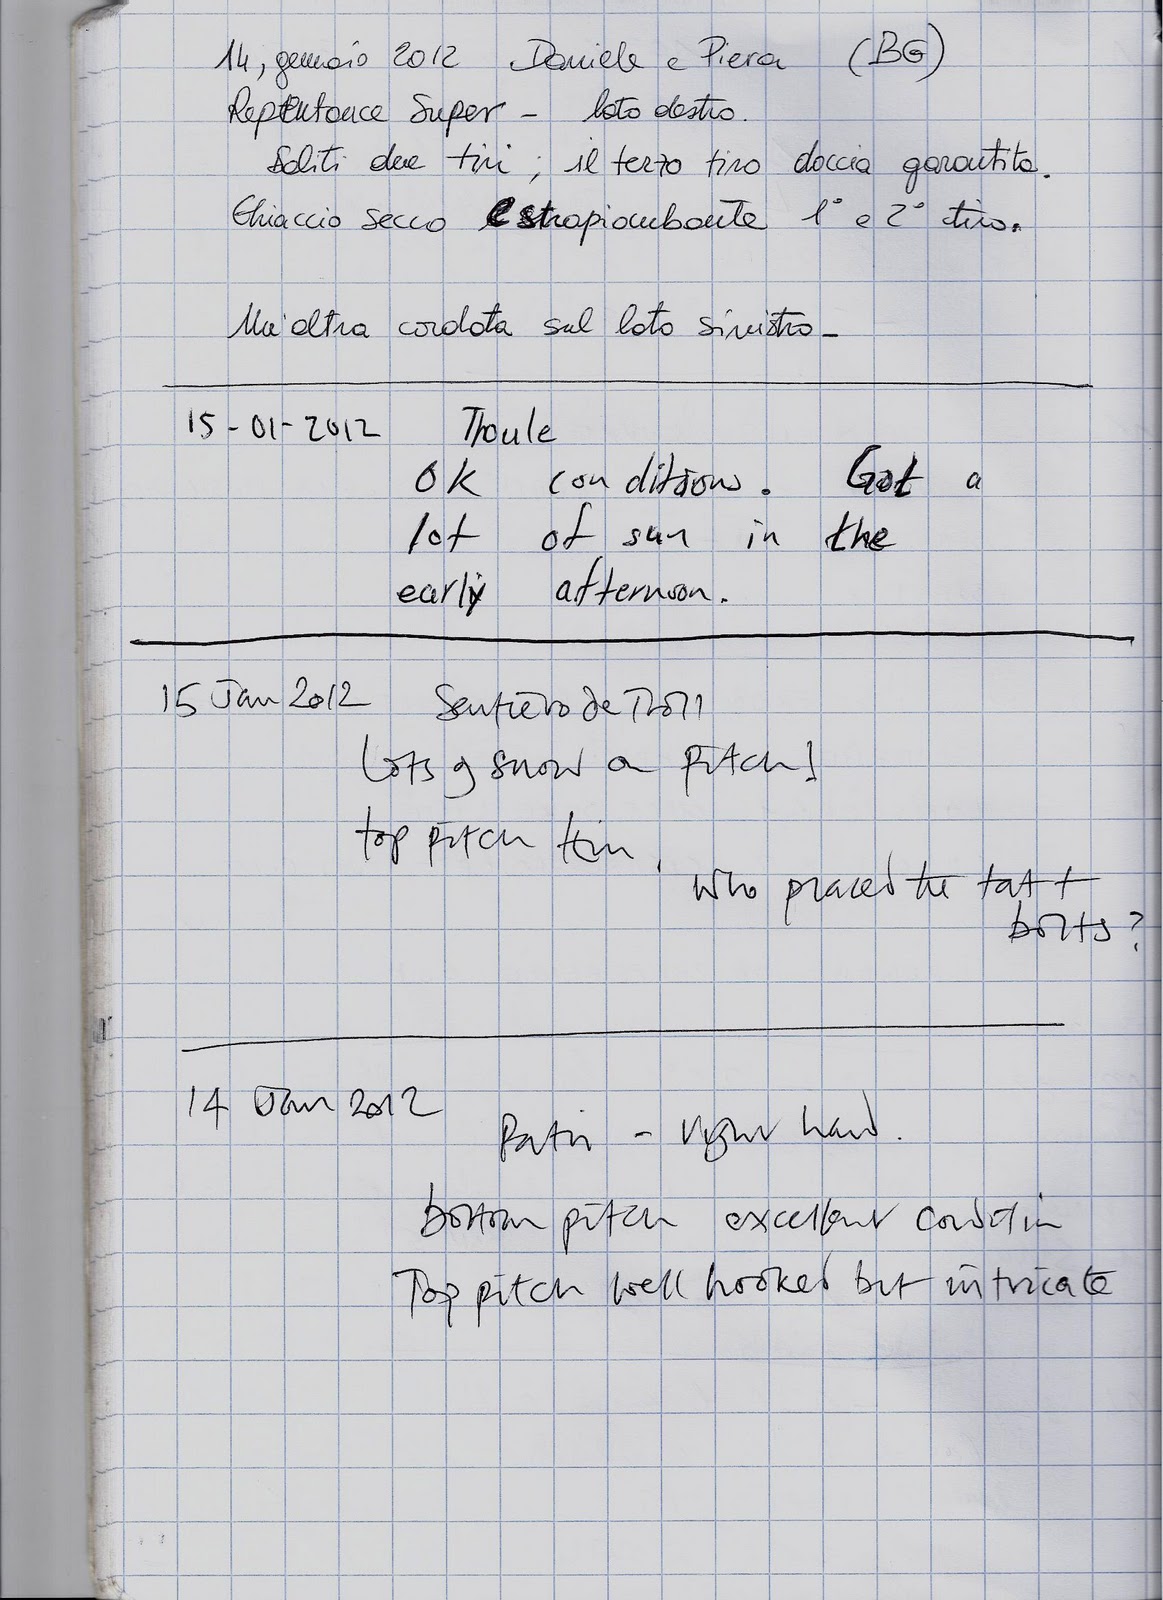 14, gennaio 2012 Daniele e Piera (BG)
Repentance Super - lato destro.
Saliti due tiri; il terzo tiro doccia garantita.
Ghiaccio secco e strapiombante 1° e 2° tiro.
Un'altra cordata sul lato sinistro -
15-01-2012 Thoule
OK conditions. Got a
lot of sun in the
early afternoon.
15 Jan 2012 Sentiero de Troll
Lots of snow on pitch 1
top pitch thin.
who placed the tat +
bolts?
14 Jan 2012
Patri - right hand.
bottom pitch excellent condition
Top pitch well hooked but intricate